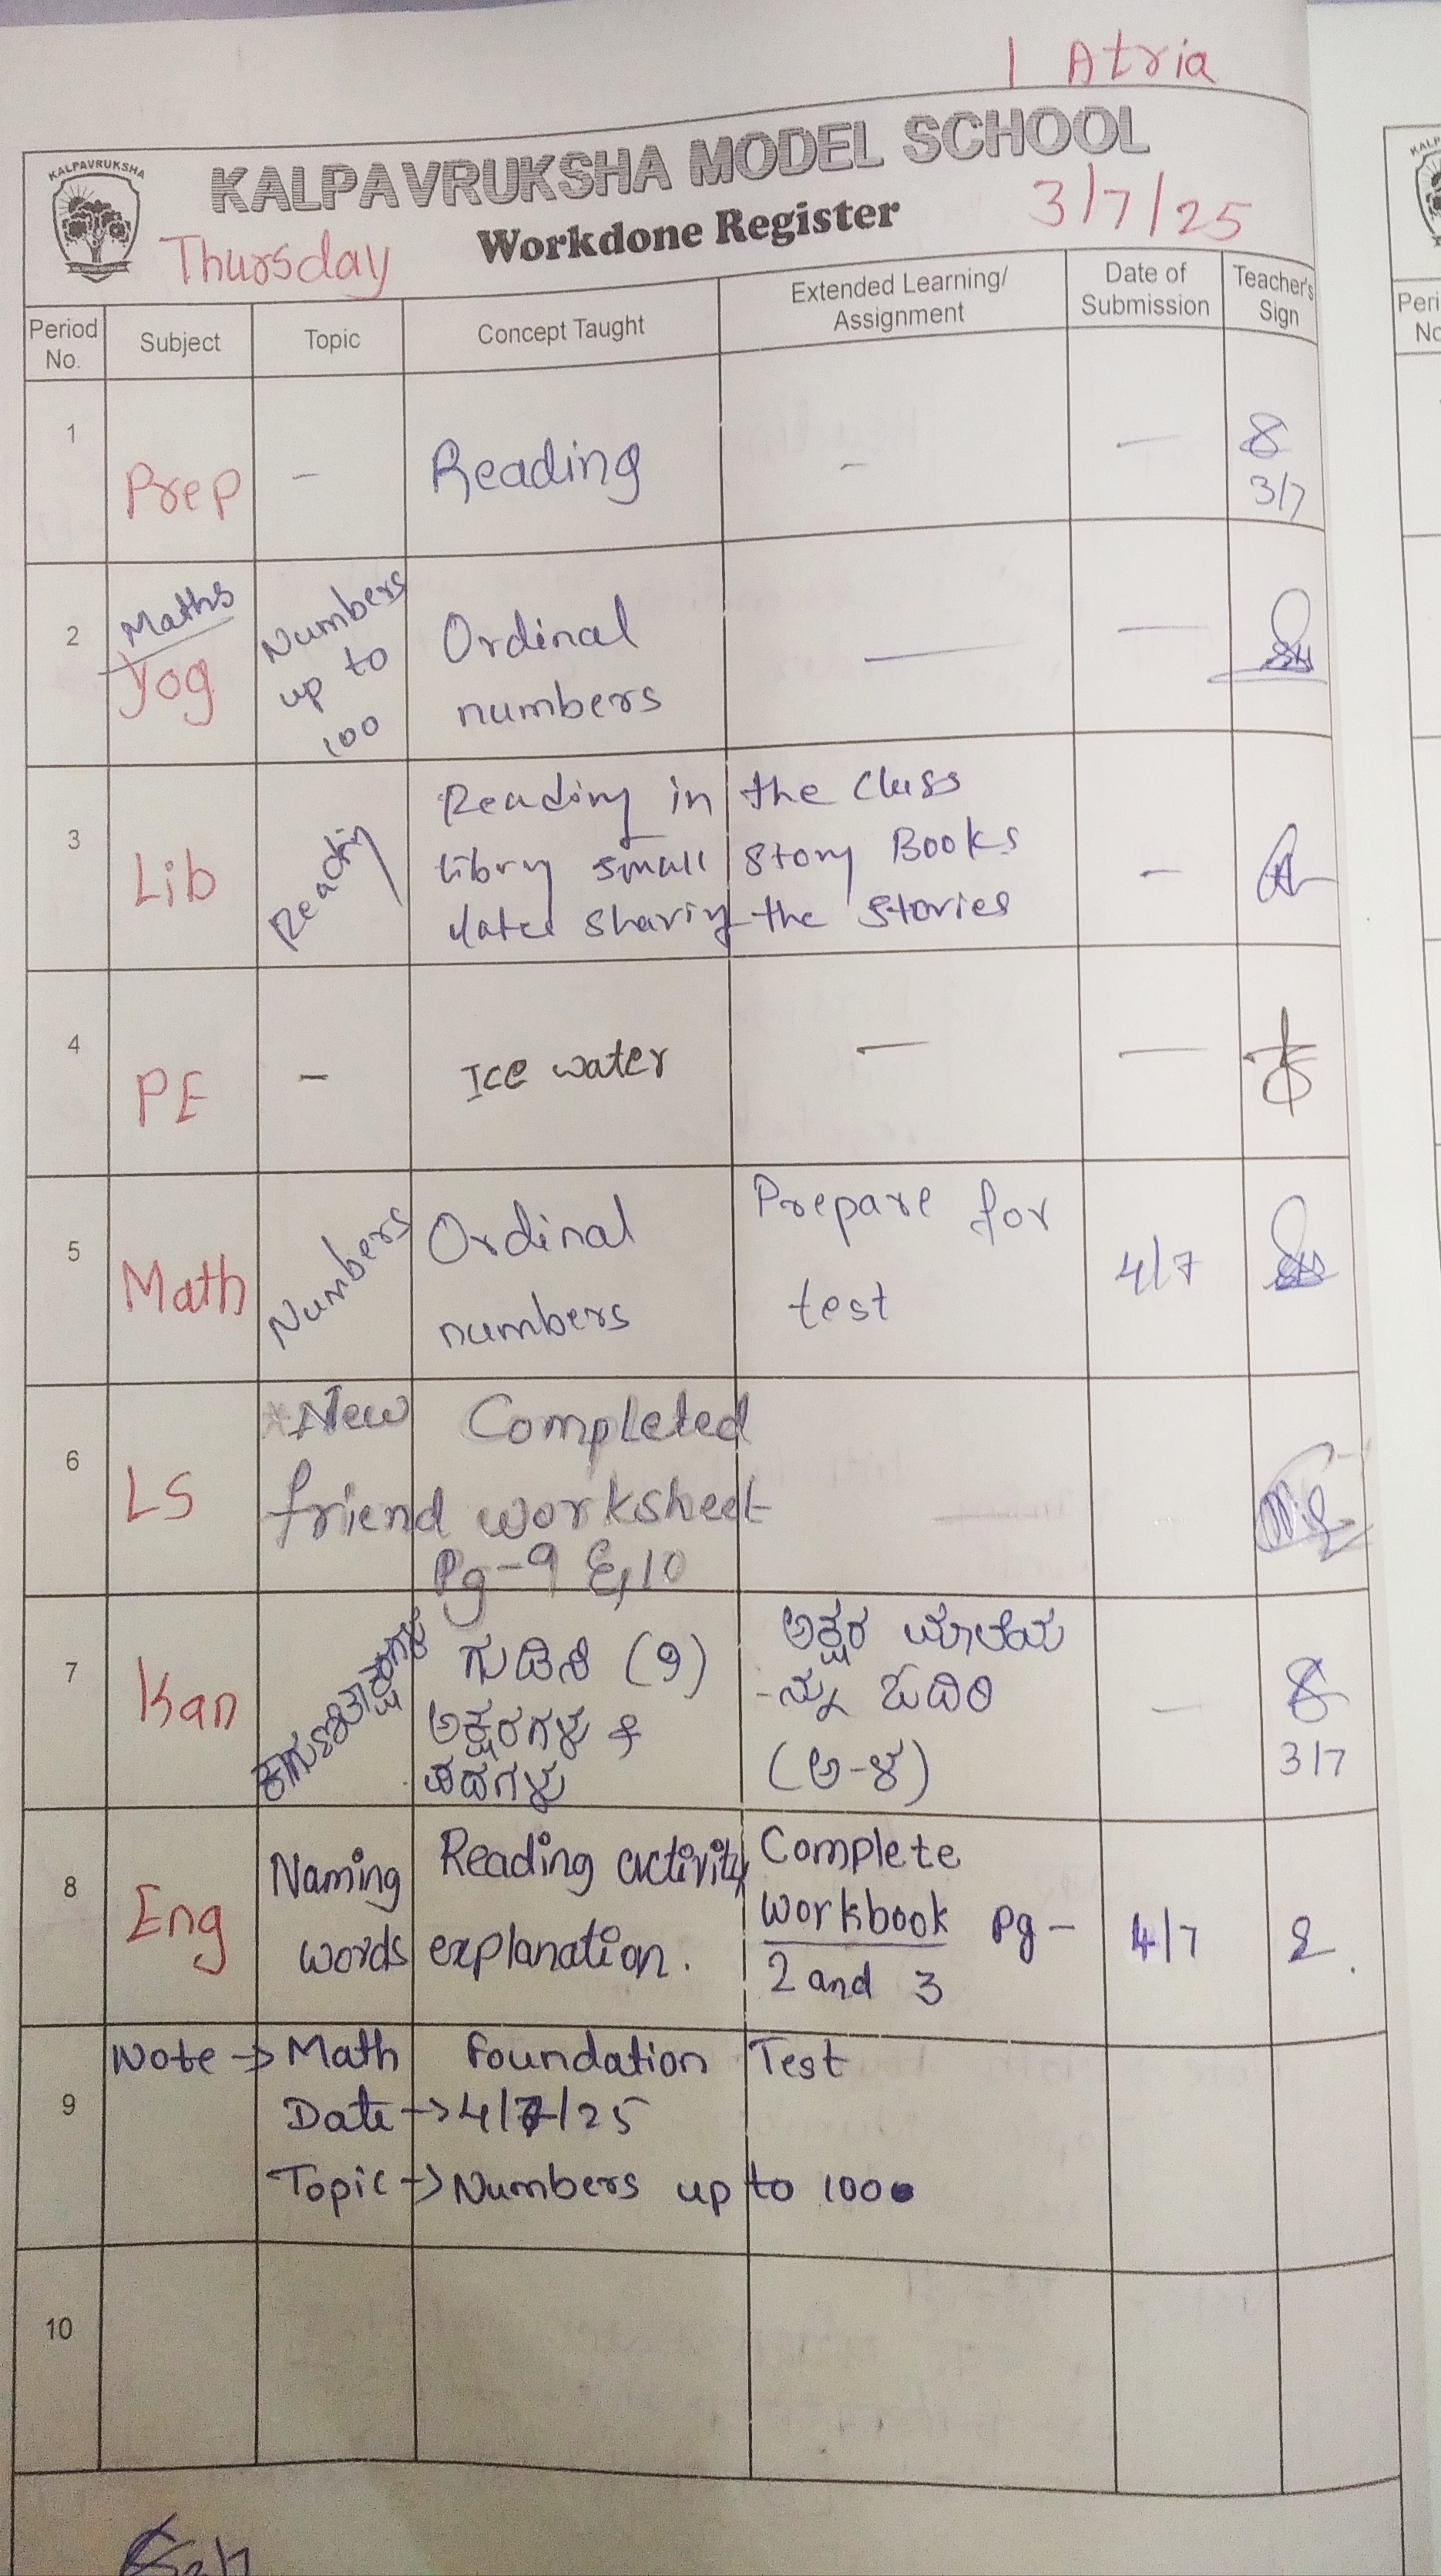 1 Atria
KALPAVRUKSHA
KALPAVRUKSHA MODEL SCHOOL
Thursday
Workdone Register
3/7/25
Period No.
Subject
Topic
Concept Taught
Extended Learning/
Assignment
Date of
Submission
Teacher's
Sign
1
Prep
-
Reading
-
-
3/7
2
Maths
Yog
Numbers
up to
100
Ordinal
numbers
-
-
3
Lib
Reading in the class
small story Books
sharing the stories
-
4
PE
-
Ice water
-
-
5
Math
Numbers
Ordinal
numbers
Prepare for
test
4/7
6
LS
New
friend
Completed
worksheet
Pg-9 & 10
7
Kan
ಅಕ್ಷರಗಳು &
ಪದಗಳು
ಅಕ್ಷರ ಮಾಲೆಯ
-ನ್ನು ಓದಿರಿ
(ಅ-ಳ)
-
3/7
8
Eng
Naming
words
Reading activity
explanation.
Complete
Workbook Pg-
2 and 3
4/7
9
Note → Math Foundation Test
Date → 4/7/25
Topic → Numbers up to 100
10
Peri
No